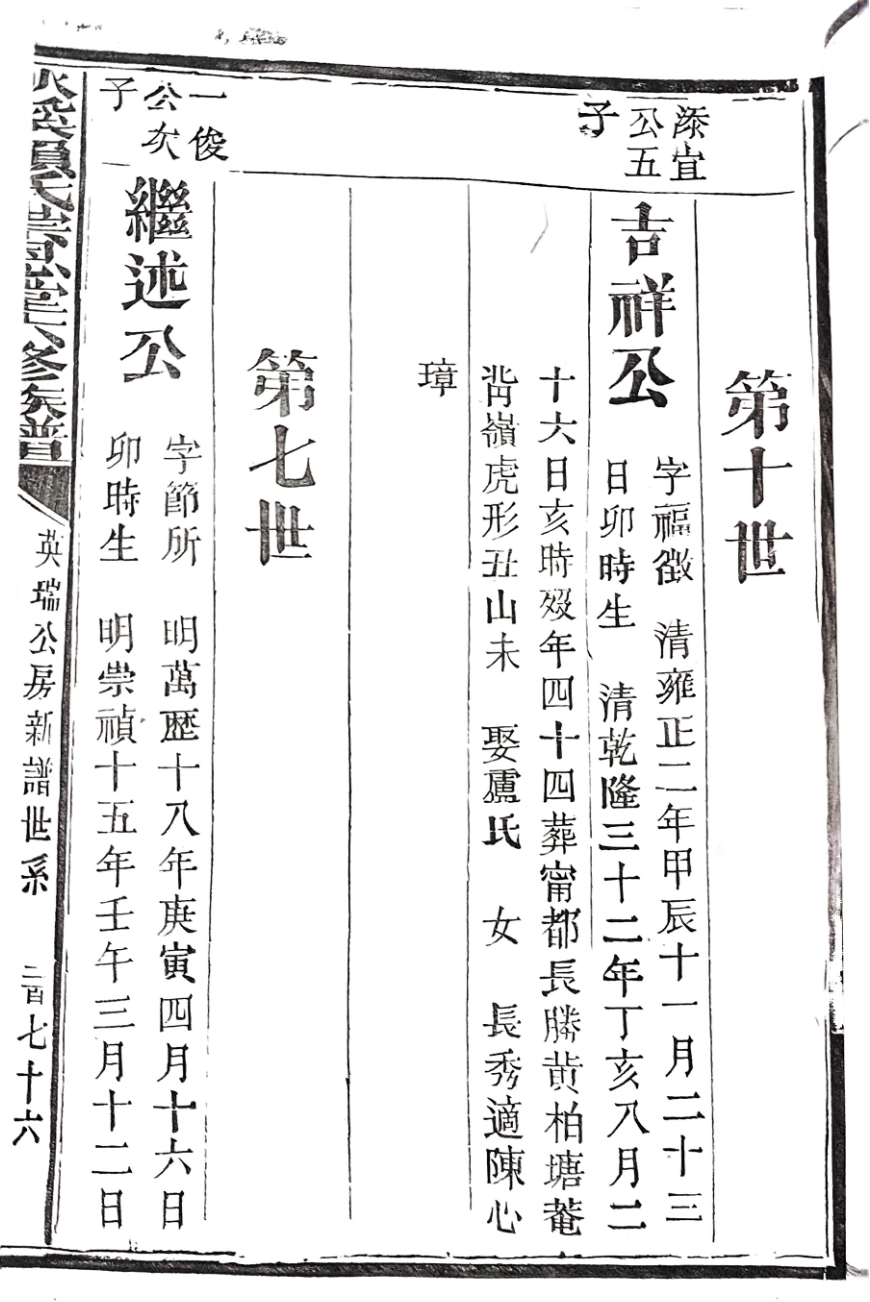 第十世
添宜
公五
子
吉祥公
字福徵　清雍正二年甲辰十一月二十三
日卯時生　清乾隆三十二年丁亥八月二
十六日亥時歿年四十四葬甯都長勝黄柏塘菴
背嶺虎形丑山未　娶盧氏　女　長秀適陳心
璋
第七世
一俊
公次
子
繼述公
字節所　明萬歷十八年庚寅四月十六日
卯時生　明崇禎十五年壬午三月十二日
賴氏崇　堂六修族譜
英瑞公房新譜世系
二百七十六